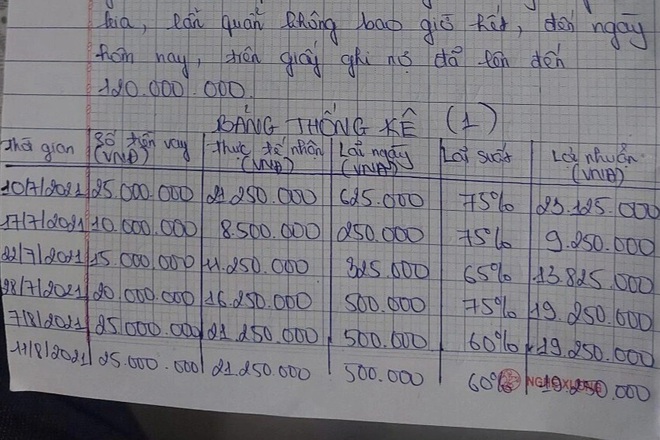 kia, lẩn quẩn không bao giờ hết, đến ngày
hôm nay, trên giấy ghi nợ đã lên đến
120.000.000.
BẢNG THỐNG KÊ (1)
Thời gian Số tiền vay (VNĐ) Thực tế nhận (VNĐ) Lãi ngày (VNĐ) Lãi suất Lợi nhuận (VNĐ)
10/7/2021 25.000.000 21.250.000 625.000 75% 23.125.000
17/7/2021 10.000.000 8.500.000 250.000 75% 9.250.000
22/7/2021 15.000.000 11.250.000 325.000 65% 13.825.000
28/7/2021 20.000.000 16.250.000 500.000 75% 19.250.000
7/8/2021 25.000.000 21.250.000 500.000 60% 19.250.000
11/8/2021 25.000.000 21.250.000 500.000 60% 19.250.000